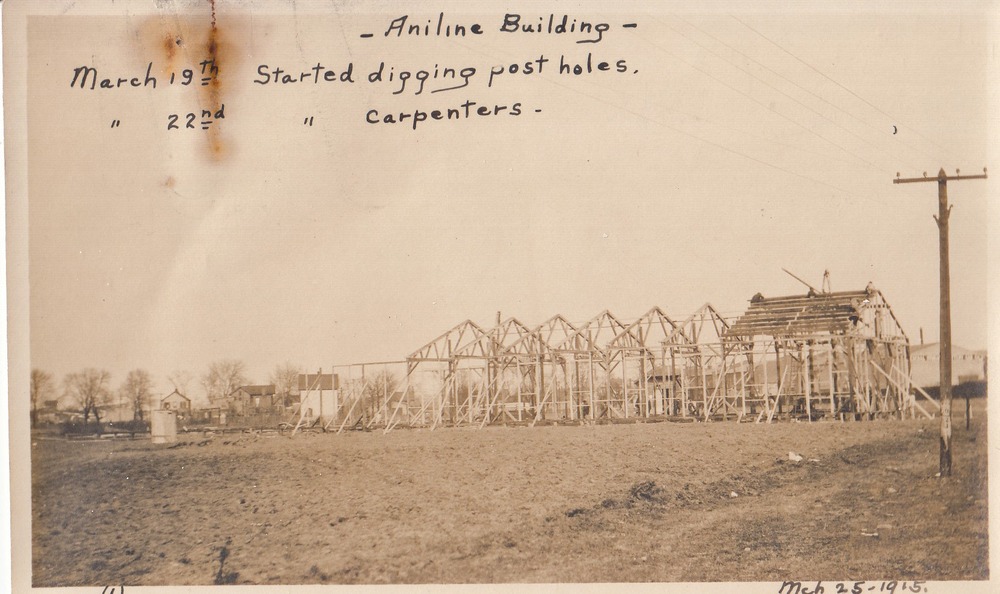 - Aniline Building -
March 19th Started digging post holes.
" 22nd " Carpenters -
Mch 25-1915.